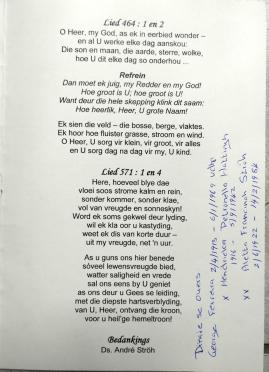 Lied 464 : 1 en 2
O Heer, my God, as ek in eerbied wonder –
en al U werke elke dag aanskou:
Die son en maan, die aarde, sterre, wolke,
hoe U dit elke dag so onderhou ...
Refrein
Dan moet ek juig, my Redder en my God!
Hoe groot is U; hoe groot is U!
Want deur die hele skepping klink dit saam:
Hoe heerlik, Heer, U grote Naam!
Ek sien die veld – die bosse, berge, vlaktes.
Ek hoor hoe fluister grasse, stroom en wind.
O Heer, U sorg vir klein, vir groot, vir alles
en U sorg dag na dag vir my, U kind.
Lied 571 : 1 en 4
Here, hoeveel blye dae
vloei soos strome kalm en rein,
sonder kommer, sonder klae,
vol van vreugde en sonneskyn!
Word ek soms gekwel deur lyding,
wil ek kla oor u kastyding,
weet ek dis van korte duur –
uit my vreugde, net 'n uur.
As u guns ons hier benede
sóveel lewensvreugde bied,
watter saligheid en vrede
sal ons eens by U geniet
as ons deur u Gees se leiding,
met die diepste hartsverblyding,
van U, Heer, ontvang die kroon,
voor u heil'ge hemeltroon!
Bedankings
Ds. André Ströh
Dinkie se ouers
George Ferreira 2/4/1913 - 6/1/1969
x Hendrina
1916 - 5/9/1962
xx Aletta
2/6/1922 - 14/2/1984